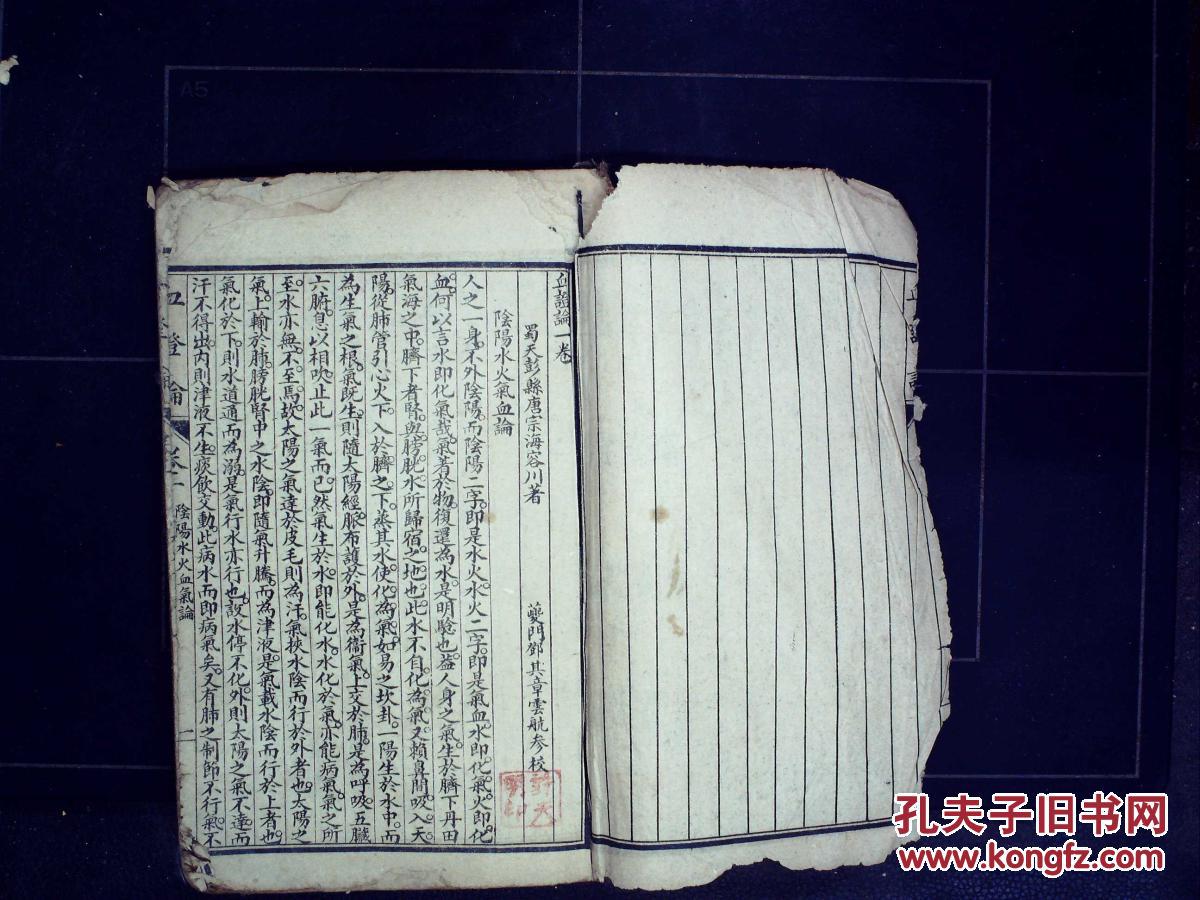 血證論一卷
蜀天彭縣唐宗海容川著 夔門鄧其章雲航參校
陰陽水火氣血論
人之一身。不外陰陽。而陰陽二字。即是水火。水火二字。即是氣血。水即化氣。火即化
血。何以言水即化氣哉。氣著於物。復還為水。是明驗也。蓋人身之氣。生於臍下丹田
氣海之中。臍下者腎與膀胱。水所歸宿之地也。此水不自化為氣。又賴鼻間吸入天
陽。從肺管引心火。下入於臍之下。蒸其水使化為氣。如易之坎卦。一陽生於水中。而
為生氣之根。氣既生。則隨太陽經脈布護於外。是為衛氣。上交於肺。是為呼吸。五臟
六腑。息以相吹。止此一氣而已。然氣生於水。即能化水。水化於氣。亦能病氣。氣之所
至。水亦無不至焉。故太陽之氣達於皮毛則為汗。氣挾水陰而行於外者也。太陽之
氣。上輸於肺。膀胱腎中之水陰。即隨氣升騰。而為津液。是氣載水陰而行於上者也。
氣化於下。則水道通而為溺。是氣行水亦行也。設水停不化。外則太陽之氣不達。而
汗不得出。內則津液不生。痰飲交動。此病水而即病氣矣。又有肺之制節不行。氣不
證論
卷一
陰陽水火血氣論
一
A5
孔夫子旧书网
www.kongfz.com